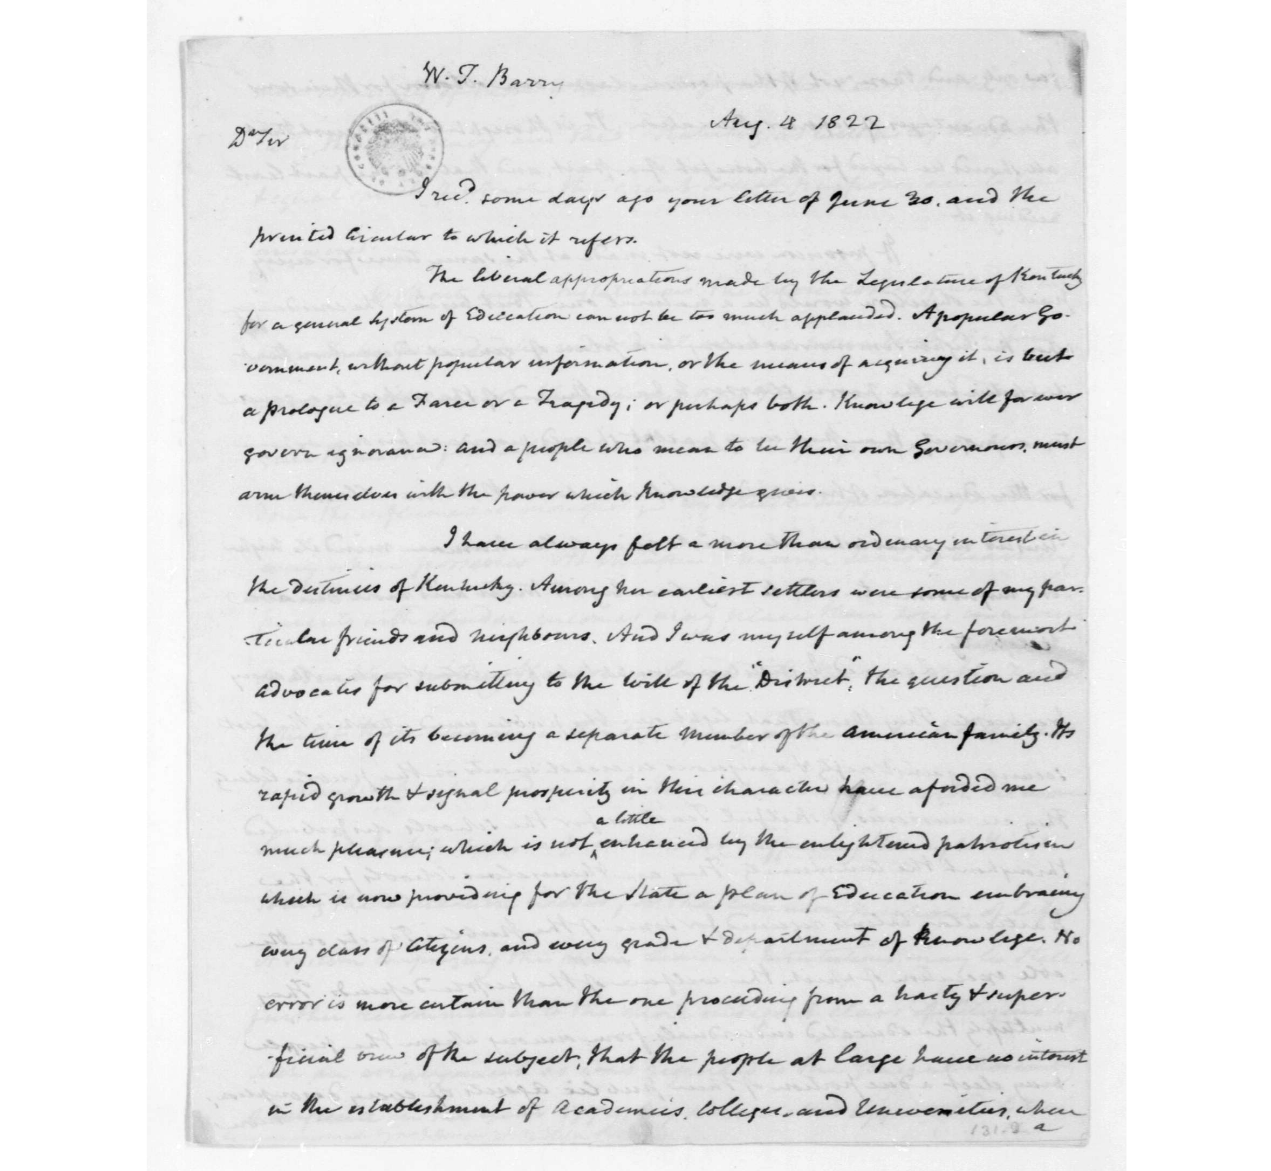 W. T. Barry
Aug. 4 1822
Dr Sir
I recd. some days ago your letter of June 30. and the
printed Circular to which it refers.
The liberal appropriations made by the Legislature of Kentucky
for a general System of Education cannot be too much applauded. A popular Go-
vernment, without popular information, or the means of acquiring it, is but
a Prologue to a Farce or a Tragedy; or perhaps both. Knowlege will for ever
govern ignorance: and a people who mean to be their own Governours, must
arm themselves with the power which Knowledge gives.
I have always felt a more than ordinary interest in
the destinies of Kentucky. Among her earliest settlers were some of my par-
ticular friends and neighbours. And I was myself among the foremost
advocates for submitting to the Will of the "District", the question and
the time of its becoming a separate member of the American family. Its
rapid growth & signal prosperity in this character have aforded me
a little
much pleasure; which is not enhanced by the enlightened patriotism
which is now providing for the State a plan of Education embracing
every class of Citizens, and every grade & department of Knowlege. No
error is more certain than the one proceeding from a hasty & super-
ficial view of the subject; that the people at large have no interest
in the establishment of Academies, Colleges, and Universities, where
a